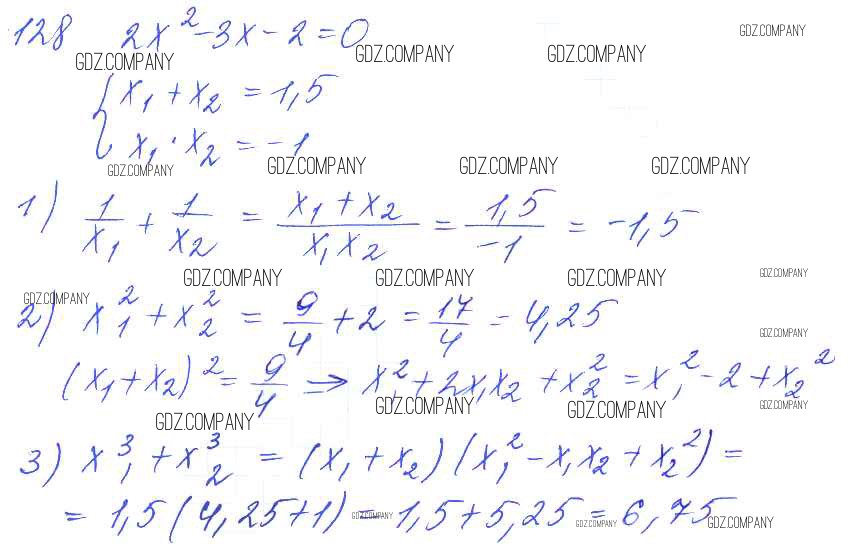 128 2x² - 3x - 2 = 0
GDZ.COMPANY GDZ.COMPANY GDZ.COMPANY GDZ.COMPANY
{ x₁ + x₂ = 1,5
x₁ · x₂ = -1
GDZ.COMPANY GDZ.COMPANY GDZ.COMPANY GDZ.COMPANY
1) 1/x₁ + 1/x₂ = (x₁ + x₂)/(x₁x₂) = 1,5/-1 = -1,5
GDZ.COMPANY GDZ.COMPANY GDZ.COMPANY GDZ.COMPANY GDZ.COMPANY
2) x₁² + x₂² = 9/4 + 2 = 17/4 = 4,25
GDZ.COMPANY
(x₁ + x₂)² = 9/4 ⇒ x₁² + 2x₁x₂ + x₂² = x₁² - 2 + x₂²
GDZ.COMPANY GDZ.COMPANY GDZ.COMPANY GDZ.COMPANY
3) x₁³ + x₂³ = (x₁ + x₂)(x₁² - x₁x₂ + x₂²) =
= 1,5(4,25+1) = 1,5+5,25 = 6,75
GDZ.COMPANY GDZ.COMPANY GDZ.COMPANY